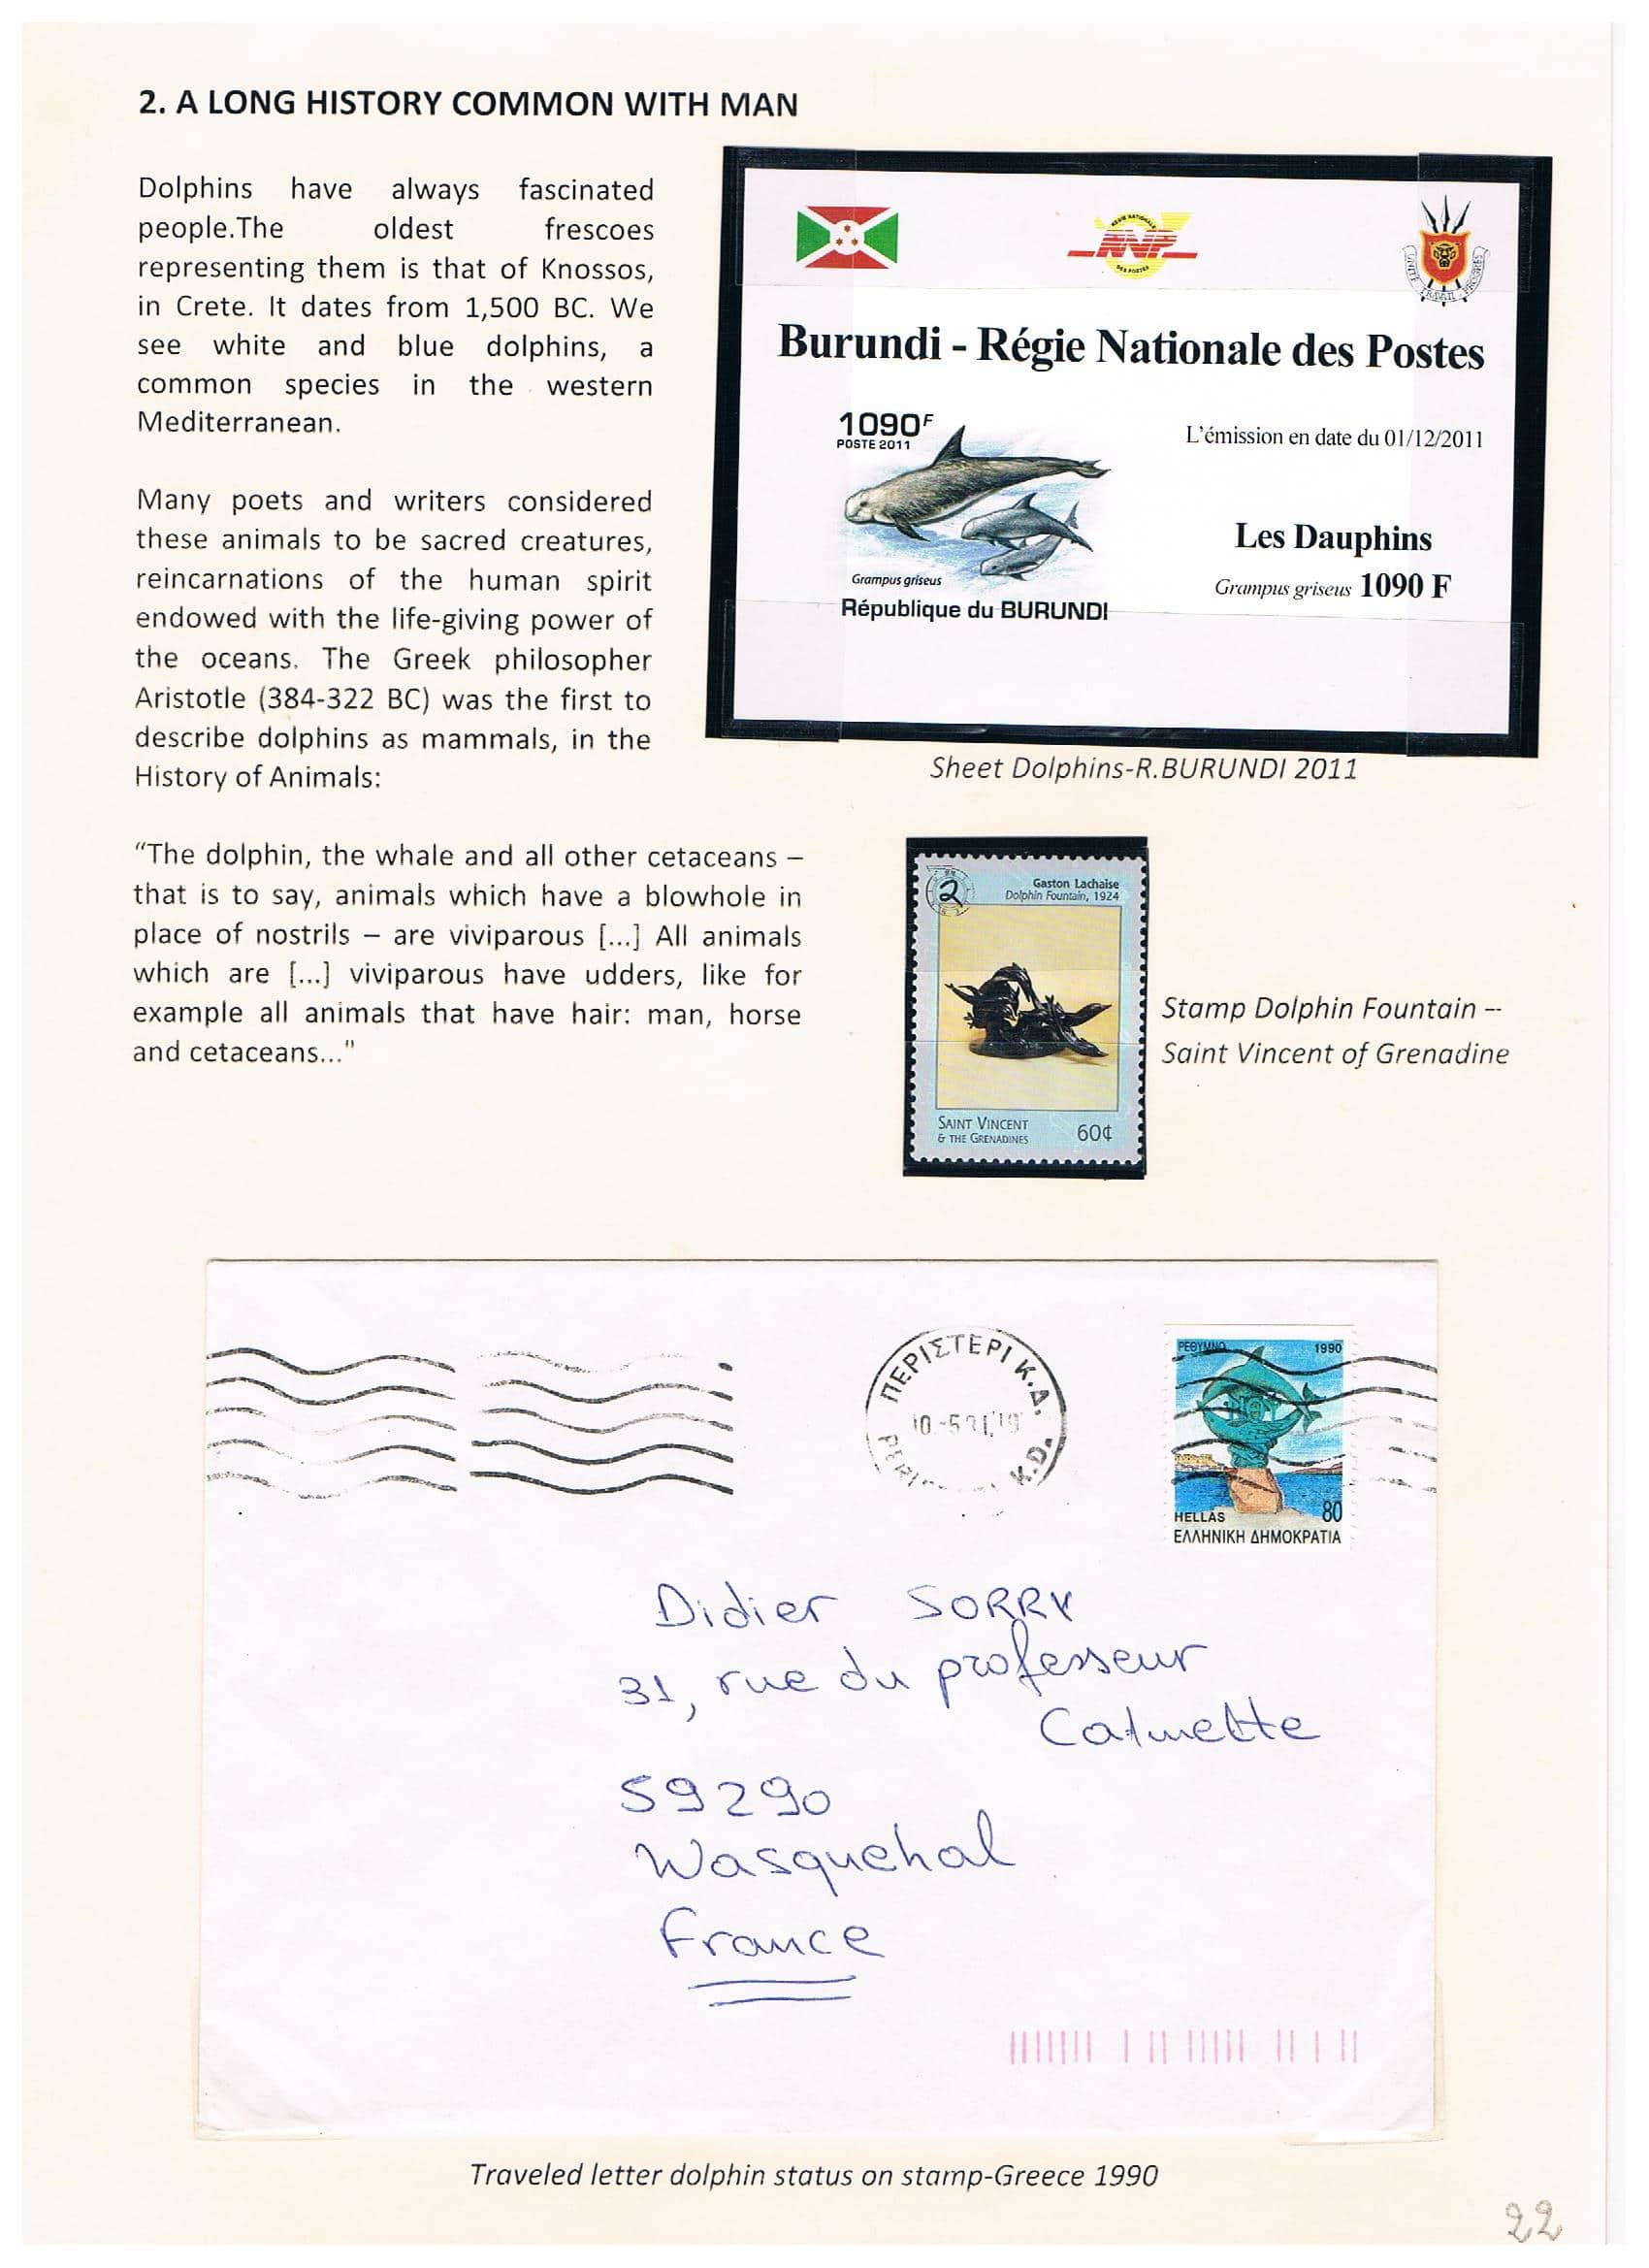 2. A LONG HISTORY COMMON WITH MAN
Dolphins have always fascinated
people.The oldest frescoes
representing them is that of Knossos,
in Crete. It dates from 1,500 BC. We
see white and blue dolphins, a
common species in the western
Mediterranean.
Many poets and writers considered
these animals to be sacred creatures,
reincarnations of the human spirit
endowed with the life-giving power of
the oceans. The Greek philosopher
Aristotle (384-322 BC) was the first to
describe dolphins as mammals, in the
History of Animals:
“The dolphin, the whale and all other cetaceans –
that is to say, animals which have a blowhole in
place of nostrils – are viviparous [...] All animals
which are [...] viviparous have udders, like for
example all animals that have hair: man, horse
and cetaceans..."
REGIE NATIONALE
RNP
DES POSTES
UNITE TRAVAIL PROGRES
Burundi - Régie Nationale des Postes
1090F
POSTE 2011
Grampus griseus
République du BURUNDI
L'émission en date du 01/12/2011
Les Dauphins
Grampus griseus 1090 F
Sheet Dolphins-R.BURUNDI 2011
2
Gaston Lachaise
Dolphin Fountain, 1924
SAINT VINCENT
& THE GRENADINES
60¢
Stamp Dolphin Fountain --
Saint Vincent of Grenadine
ΠΕΡΙΣΤΕΡΙ Κ.Δ.
K.D.
ΡΕΘΥΜΝΟ 1990
80
HELLAS
ΕΛΛΗΝΙΚΗ ΔΗΜΟΚΡΑΤΙΑ
Didier SORRY
31, rue du professeur
Calmette
59290
Wasquehal
France
Traveled letter dolphin status on stamp-Greece 1990
22